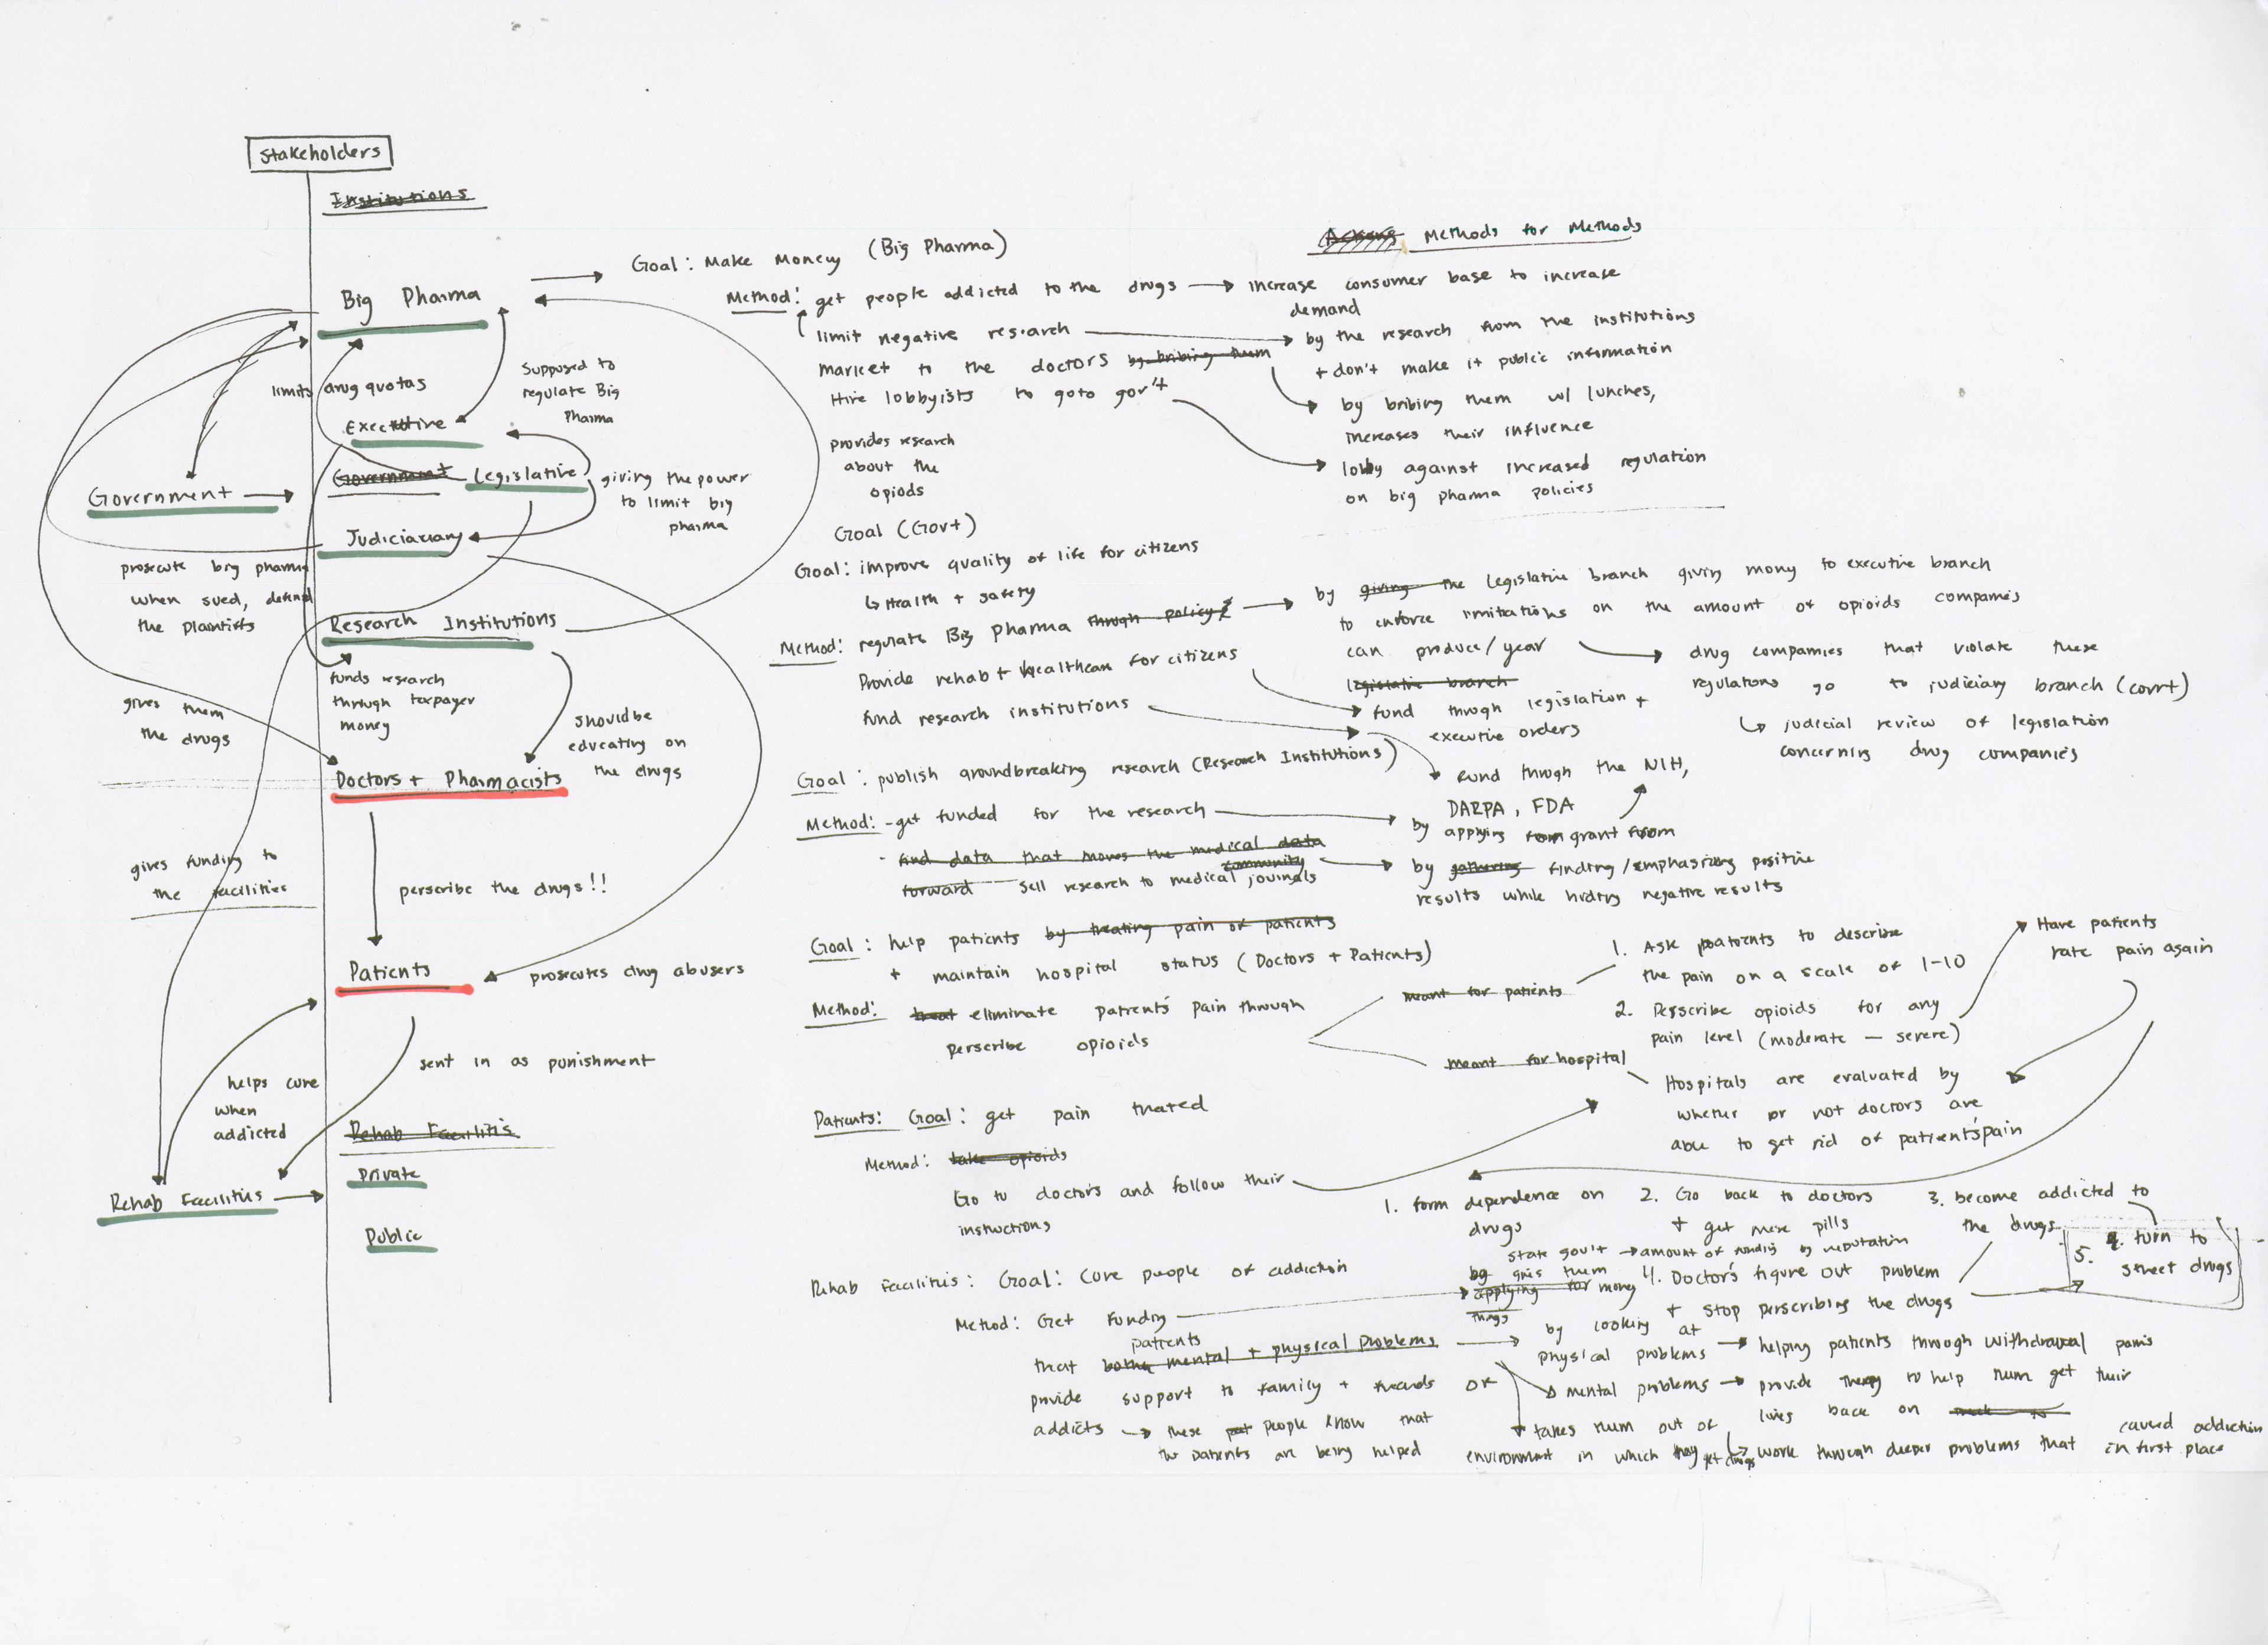 Stakeholders
Institutions
Big Pharma
limits drug quotas
Supposed to
regulate Big
Pharma
Executive
Government Legislative
Government
giving the power
to limit big
pharma
Judiciarary
prosecute big pharma
when sued, defend
the plaintiffs
Research Institutions
funds research
through taxpayer
money
gives them
the drugs
should be
educating on
the drugs
Doctors + Pharmacists
gives funding to
the facilities
perscribe the drugs!!
Patients
prosecutes drug abusers
sent in as punishment
helps cure
when
addicted
Rehab Facilitis
Rehab Facilitis
Private
Public
Goal: Make Money (Big Pharma)
Method: get people addicted to the drugs
limit negative research
market to the doctors by bribing them
Hire lobbyists to goto gov't
provides research
about the
opiods
Actions Methods for Methods
increase consumer base to increase
demand
by the research from the institutions
+ don't make it public information
by bribing them w/ lunches,
increases their influence
lobby against increased regulation
on big pharma policies
Goal (Gov+)
Goal: improve quality of life for citizens
Health + safety
Method: regulate Big Pharma through policy
Provide rehab + healthcare for citizens
fund research institutions
by giving the Legislative branch giving mony to executive branch
to enforce limitations on the amount of opioids companies
can produce/year
legislative branch
fund through legislation +
executive orders
drug companies that violate these
regulations go to judiciary branch (court)
judicial review of legislation
concerning drug companies
Goal: publish groundbreaking research (Research Institutions)
Method: - get funded for the research
- find data that moves the medical data
community
forward sell research to medical journals
Fund through the NIH,
DARPA, FDA
by applying from grant from
by gathering finding/emphasizing positive
results while hiding negative results
Goal: help patients by treating pain of patients
+ maintain hospital status (Doctors + Patients)
Method: treat eliminate patients' pain through
perscribe opioids
meant for patients
meant for hospital
1. Ask patients to describe
the pain on a scale of 1-10
2. Perscribe opioids for any
pain level (moderate — severe)
Have patients
rate pain again
Hospitals are evaluated by
whether or not doctors are
able to get rid of patient's pain
Patients: Goal: get pain treated
Method: take opioids
Go to doctors and follow their
instructions
1. form dependence on
drugs
2. Go back to doctors
+ get more pills
3. become addicted to
the drugs
4. Doctor's figure out problem
+ stop perscribing the drugs
5. 4. turn to
street drugs
Rehab Facilitis: Goal: Cure people of addiction
Method: Get Funding
state gov't → amount of funding by reputation
by gives them
applying for money
things
patients
that both mental + physical problems
provide support to family + friends of
addicts → these people know that
the patients are being helped
by looking at
physical problems → helping patients through withdrawal pains
mental problems → provide therapy to help them get their
lives back on track
takes them out of
environment in which they get drugs
work through deeper problems that caused addiction
in first place